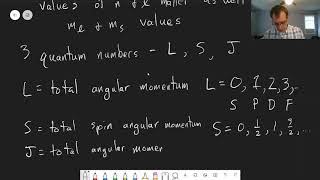 values of n & l matter as well
me & ms values
3 quantum numbers - L, S, J
L = total angular momentum L = 0, 1, 2, 3, ..
S P D F
S = total spin angular momentum S = 0, 1/2, 1, 3/2, ...
J = total angular momen